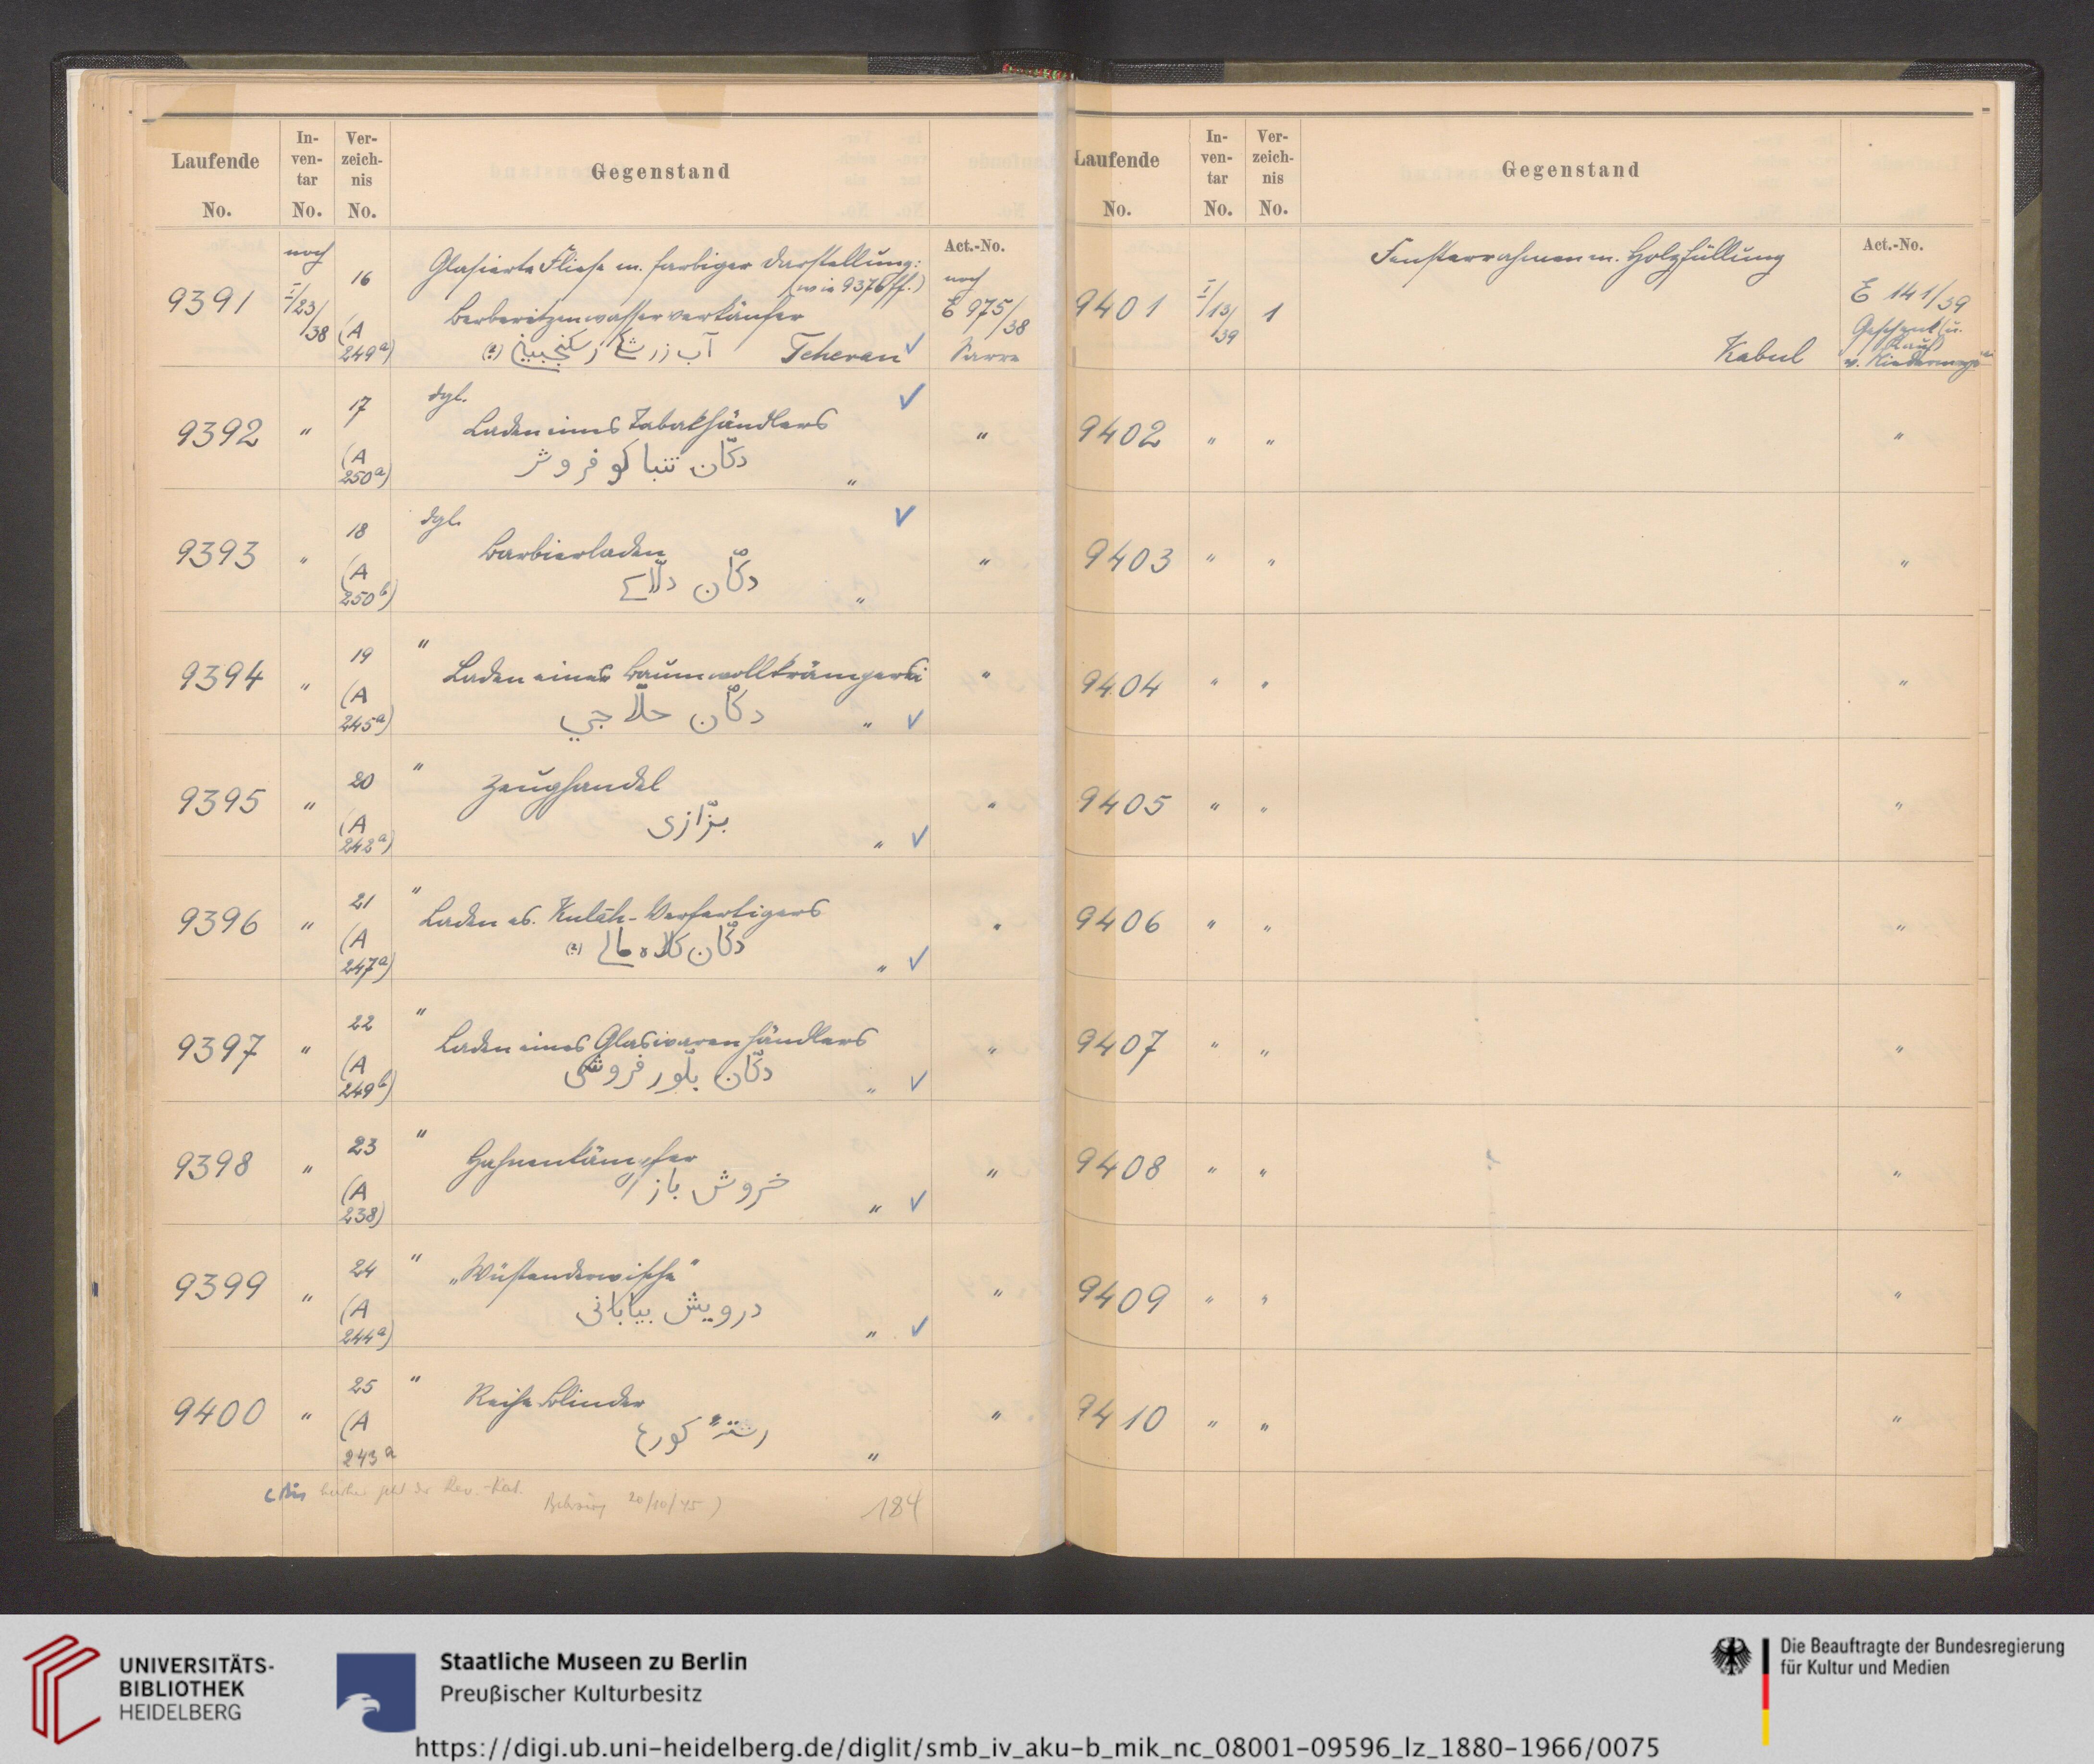 Laufende No.
In-ven-tar No.
Ver-zeich-nis No.
Gegenstand
Act.-No.
9391
noch
I/23/38
16
(A 249a)
Glasierte Fliese m. farbiger Darstellung:
(wie 9376ff.)
Berberitzenwasserverkäufer
Teheran ✓
noch
E 975/38
Sarre
9392 " 17
(A 250a)
dgl. ✓
Laden eines Tabakhändlers
دکّان تنباکو فروش "
"
9393 " 18
(A 250b)
dgl. ✓
Barbierladen
دکّان دلّاکے "
"
9394 " 19
(A 245a)
"
Laden eines Baumwollkrämpers
دکّان حلّاجي " ✓
"
9395 " 20
(A 242a)
"
Zeughandel
بزّازى " ✓
"
9396 " 21
(A 247a)
"
Laden es. Kulāh-Verfertigers
دکّان کلاه مالے (?) " ✓
"
9397 " 22
(A 249b)
"
Laden eines Glaswarenhändlers
دکّان بلّور فروشى " ✓
"
9398 " 23
(A 238)
"
Hahnenkämpfer
خروش باز " ✓
"
9399 " 24
(A 244a)
"
„Wüstenderwische"
درويش بيابانى " ✓
"
9400 " 25
(A 243a
"
Reihe Blinder
"
"
(Bis hierher geht der Rev.-Kat.
20/10/45)
184
Laufende No.
In-ven-tar No.
Ver-zeich-nis No.
Gegenstand
Act.-No.
9401
I/13/39
1
Fensterrahmen m. Holzfüllung
Kabul
E 141/39
Geschenk (u. Kauf)
9402 " " "
9403 " " "
9404 " " "
9405 " " "
9406 " " "
9407 " " "
9408 " " "
9409 " " "
9410 " " "
UNIVERSITÄTS-
BIBLIOTHEK
HEIDELBERG
Staatliche Museen zu Berlin
Preußischer Kulturbesitz
Die Beauftragte der Bundesregierung
für Kultur und Medien
https://digi.ub.uni-heidelberg.de/diglit/smb_iv_aku-b_mik_nc_08001-09596_lz_1880-1966/0075